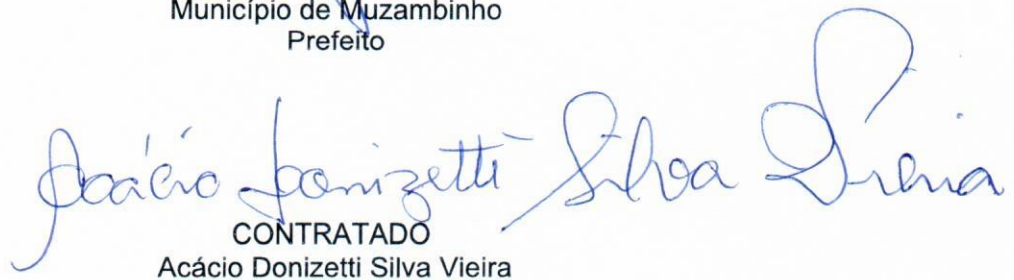 Município de Muzambinho
Prefeito
Acácio Donizetti Silva Vieira
CONTRATADO
Acácio Donizetti Silva Vieira